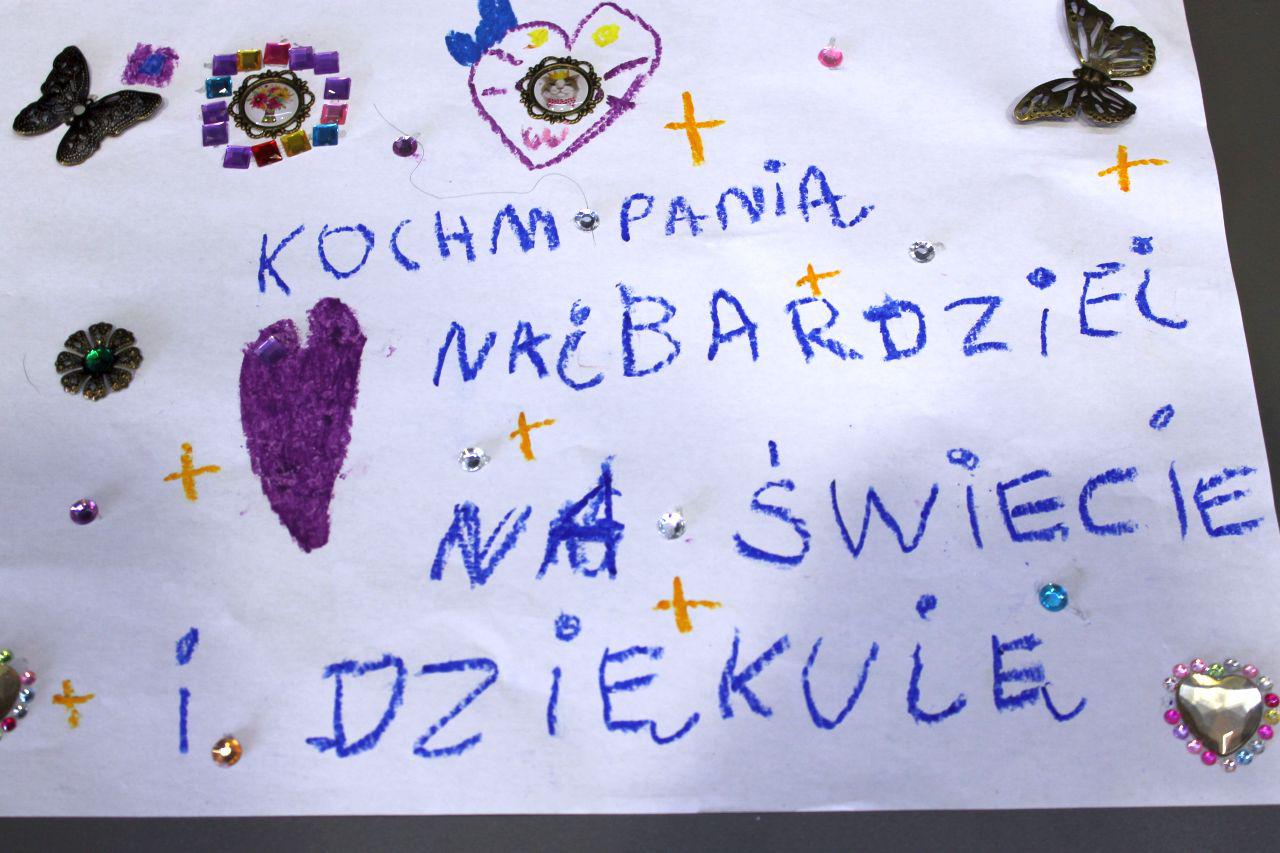 KOCHM PANIĄ
NAJBARDZIEJ
NA ŚWIECIE
I DZIĘKUJĘ